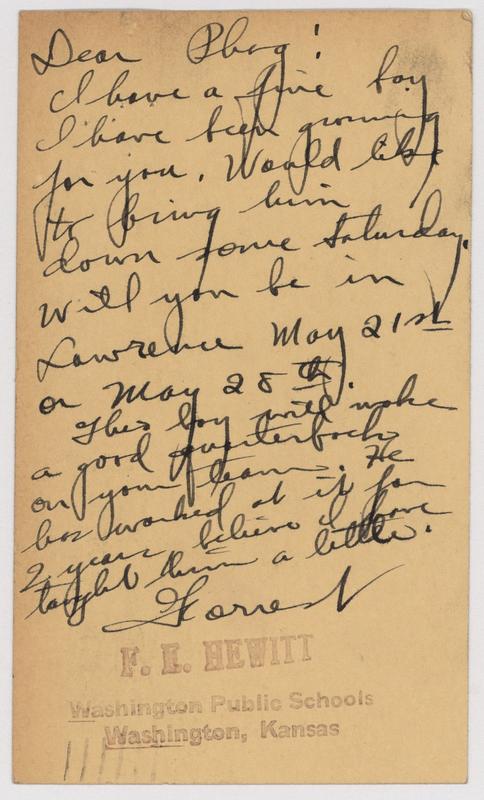 Dear Phog!
I have a fine boy
I have been grooming
for you. Would like
to bring him
down some Saturday.
Will you be in
Lawrence May 21st
or May 28th.
This boy will make
a good quarterback
on your team. He
has worked at it for
2 years believe I have
taught him a little.
Forrest
F. E. HEWITT
Washington Public Schools
Washington, Kansas